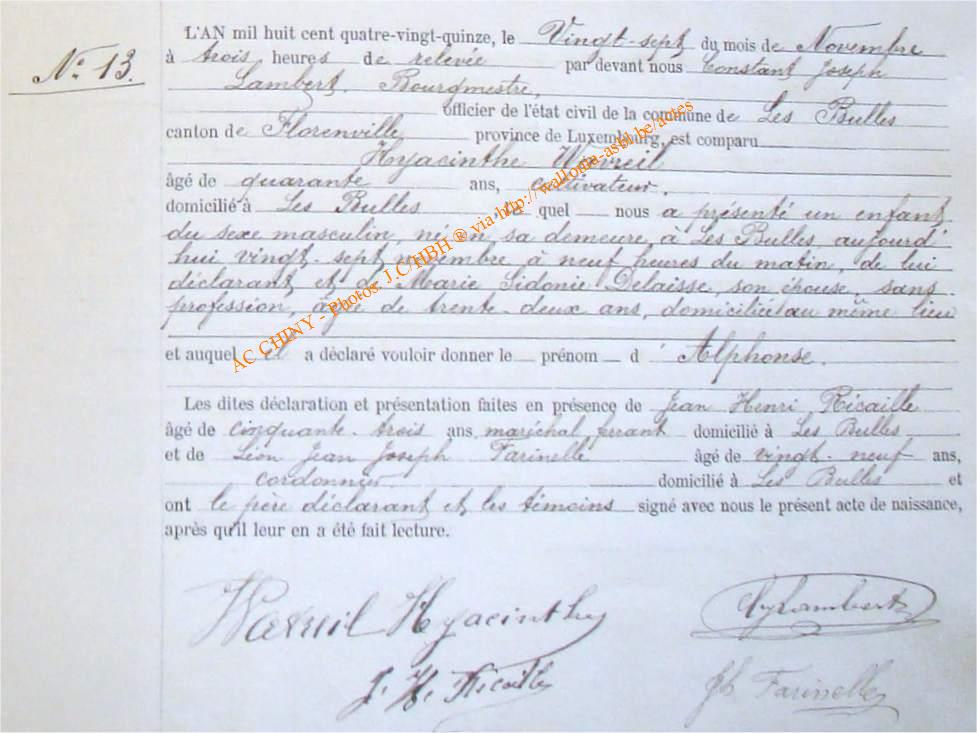 L'AN mil huit cent quatre-vingt-quinze, le Vingt-sept du mois de Novembre
N° 13.
à trois heures de relevée par devant nous Constant Joseph
Lambert, Bourgmestre,
officier de l'état civil de la commune de Les Bulles
canton de Florenville province de Luxembourg, est comparu
Hyacinthe Watreil
âgé de quarante ans, cultivateur.
domicilié à Les Bulles, Le quel nous a présenté un enfant
du sexe masculin, né en sa demeure, à Les Bulles, aujourd'
hui vingt-sept novembre à neuf heures du matin, de lui
déclarant et de Marie Sidonie Delaisse, son épouse, sans
profession, âgée de trente-deux ans, domiciliée au même lieu
et auquel il a déclaré vouloir donner le prénom d' Alphonse.
Les dites déclaration et présentation faites en présence de Jean Henri Ricaille
âgé de cinquante-trois ans, maréchal ferrant domicilié à Les Bulles
et de Léon Jean Joseph Farinelle âgé de vingt-neuf ans,
cordonnier domicilié à Les Bulles et
ont le père déclarant et les témoins signé avec nous le présent acte de naissance,
après qu'il leur en a été fait lecture.
Watreil Hyacinthe
Lambert
J. H. Ricaille
Jh Farinelle
AC CHINY - Photos: J.C/HBH ® via http://wallonia-asbl.be/actes